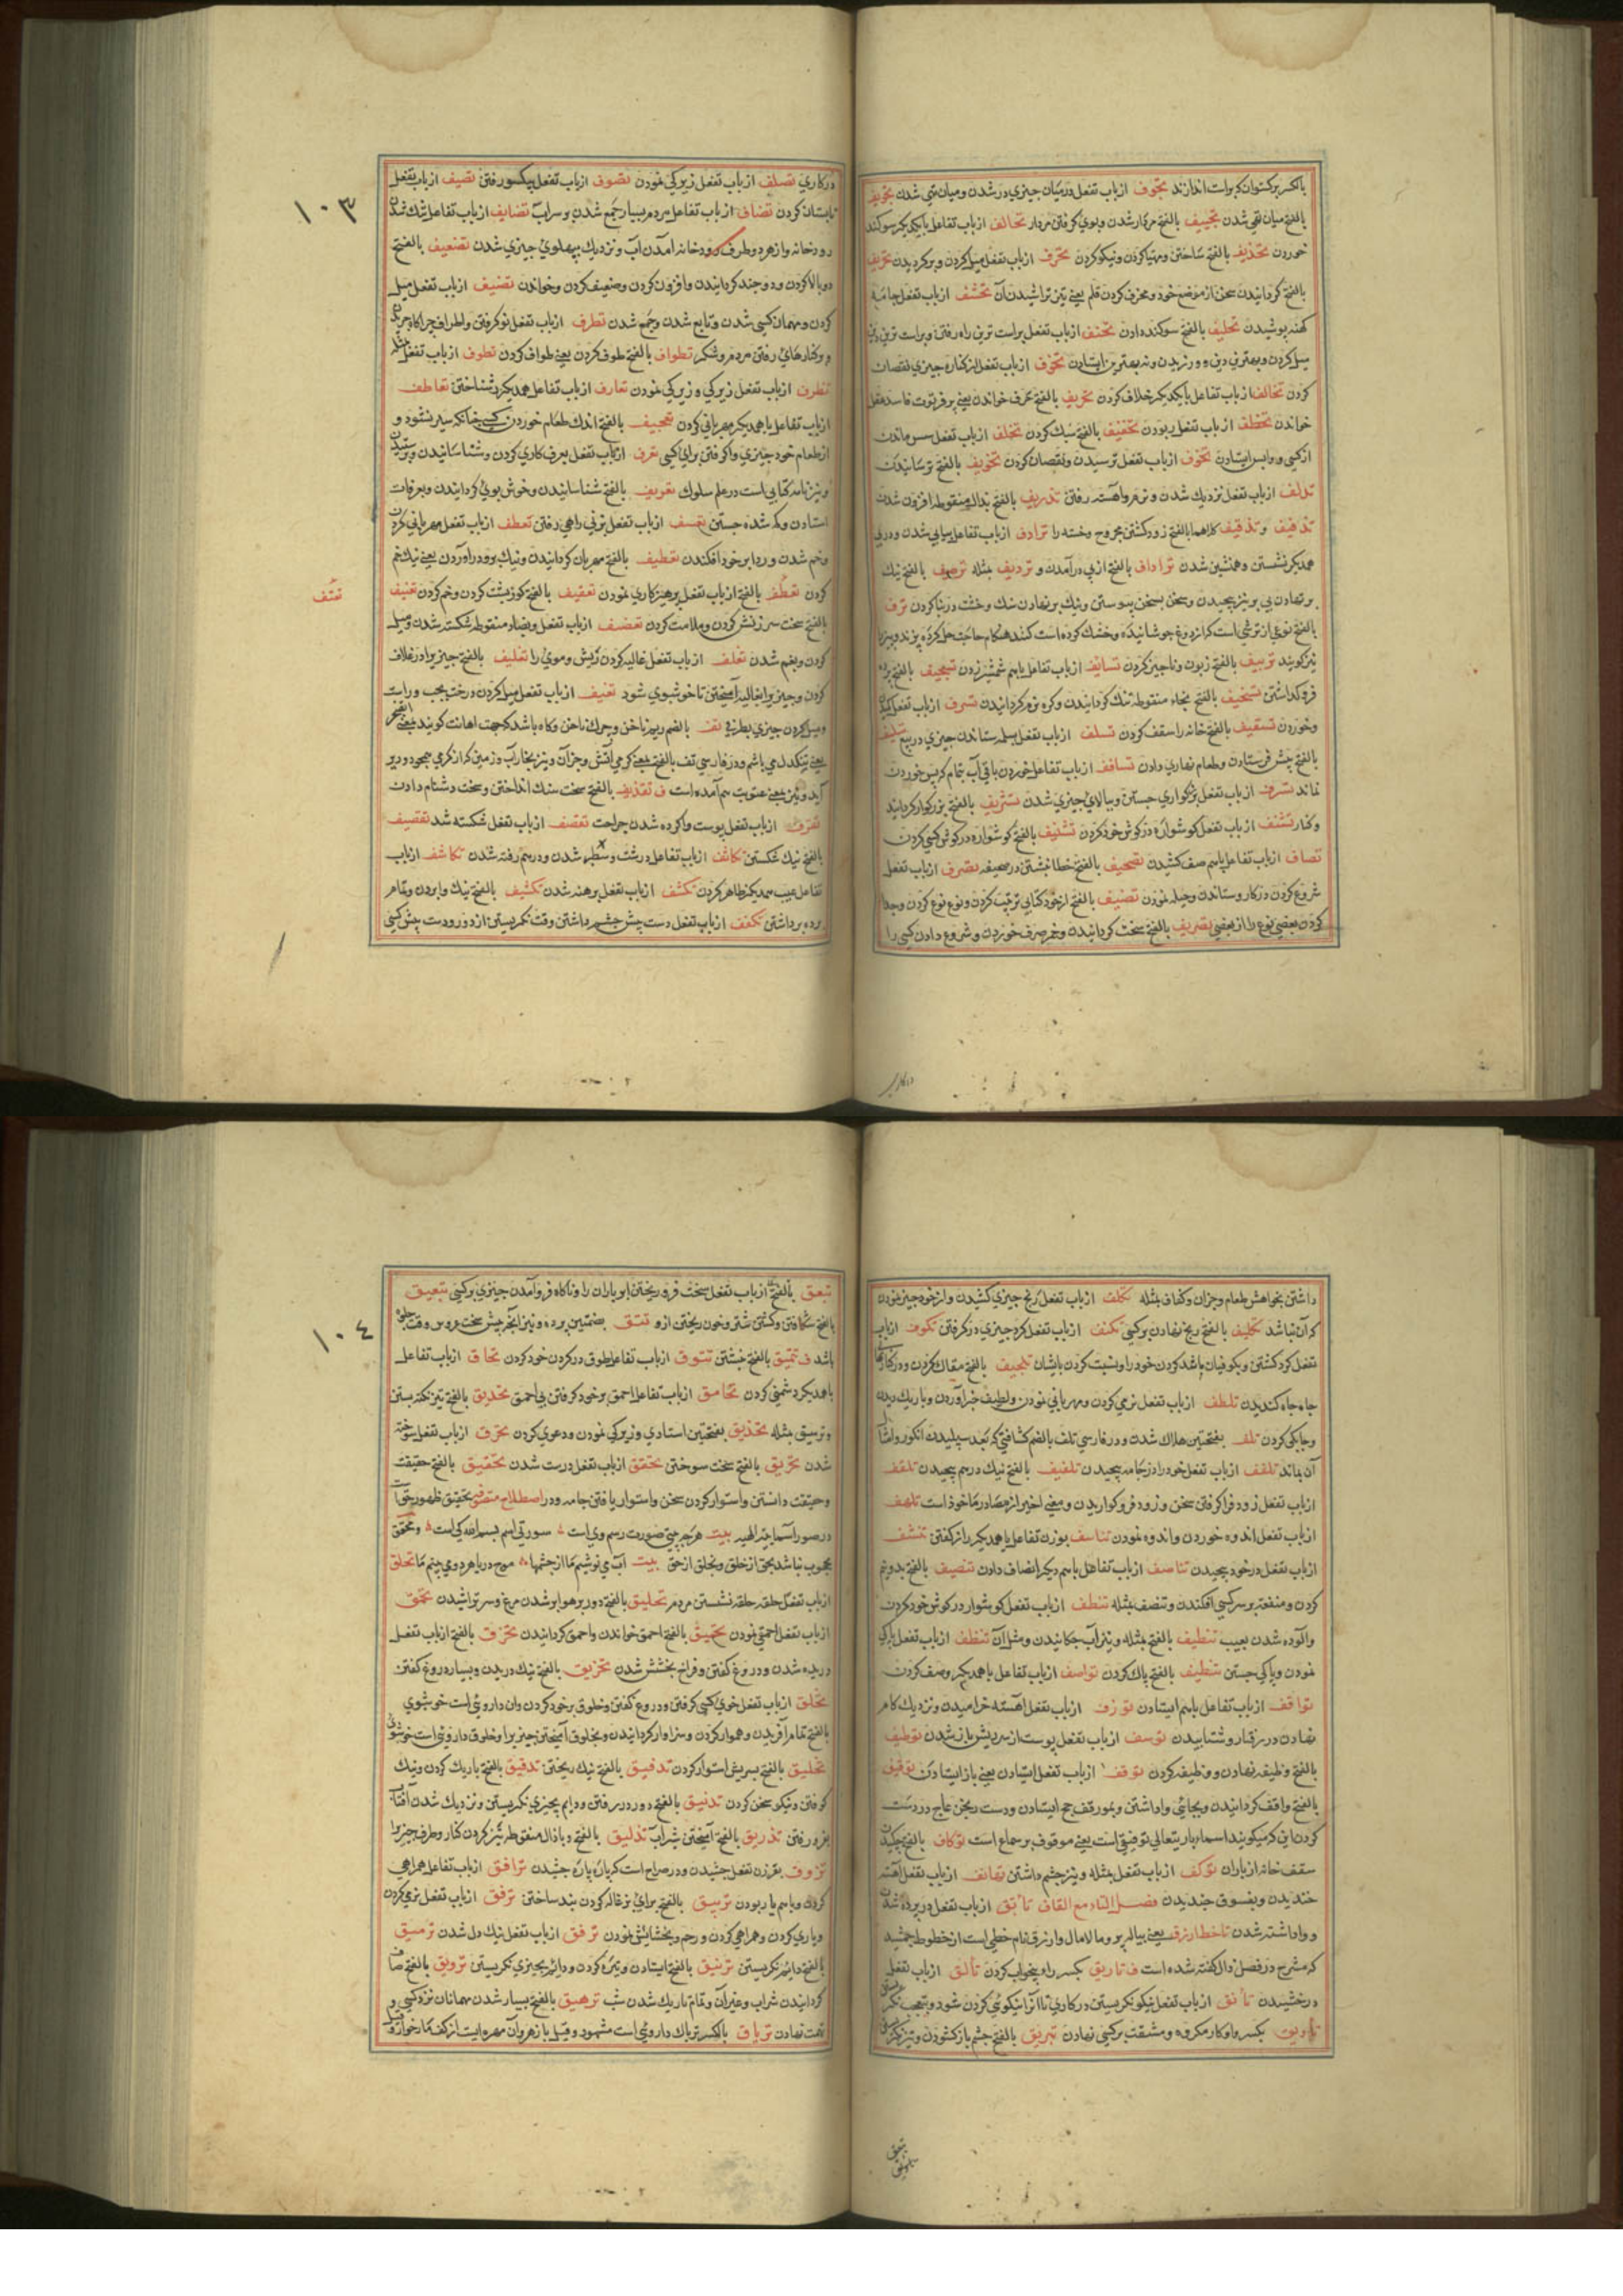 بالکسر برکستوان که برات اندازند تجوف از باب تفعل درمیان چیزی در شدن و میان تهی شدن تجویف
بالفتح میان تهی شدن تجییف بالفتح مردار شدن و بوی گرفتن مردار تحالف از باب تفاعل با یکدیگر سوکند
خوردن تحذیف بالفتح ساختن و مهیا کردن و نیکو کردن تحرف از باب تفعل میل کردن و برگردیدن تحریف
بالفتح کردانیدن سخن از موضع خود و محرف کردن قلم یعنی تیز تراشیدن آن تحشف از باب تفعل جامه
کهنه پوشیدن تحلیف بالفتح سوکند دادن تحنف از باب تفعل براست ترین راه رفتن و براست ترین دین
کردن تخالف از باب تفاعل با یکدیکر خلاف کردن تخریف بالفتح خرف خواندن یعنی پیر فرتوت فاسد عقل
خواندن تخطف از باب تفعل ربودن تخفیف بالفتح سبک کردن تخلف از باب تفعل سپس ماندن
از کسی و واپس ایستادن تخوف از باب تفعل ترسیدن و نقصان کردن تخویف بالفتح ترسانیدن
تدلف از باب تفعل نزدیک شدن و نرم و آهسته رفتن تذریف بالفتح بذال منقوطه افزون شدن
تدفیف و تذفیف کلاهما بالفتح زود کشتن مجروح و خسته را ترادف از باب تفاعل پیاپی شدن و در پی
همدیگر نشستن و همنشین شدن ترداف بالفتح از پی در آمدن و تردیف مثله ترصیف بالفتح نیک
بر نهادن پی بر تیر پیچیدن و سخن بسخن پیوستن و سنک بر نهادن سنک و خشت در بنا کردن ترف
بالفتح نوعی از ترشی است که از دوغ جوشانیده و خشک کرده است کنند هنگام حاجت حل کرده پزند و پیرزا
نیز کویند تزییف بالفتح زبون و ناچیز کردن تسایف از باب تفاعل باهم شمشیر زدن تسجیف بالفتح پرده
فروکذاشتن تسخیف بالفتح بخاء منقوطه تنک کردانیدن و کره نرم کردانیدن تسرف از باب تفعل
و خوردن تسقیف بالفتح خانه را سقف کردن تسلف از باب تفعل بسلم ستاندن چیزی در بیع تسلیف
بالفتح پیش فرستادن و طعام نهاری دادن تسافف از باب تفاعل خوردن باقی آب بتمام که پس خوردن
نماند تشرف از باب تفعل بزرکواری جستن و ببالای چیزی شدن تشریف بالفتح بزرکوار کردانید
و کنار تشنف از باب تفعل کوشواره در کوش خود کردن تشنیف بالفتح کوشواره در کوش کسی کردن
تصاف از باب تفاعل باهم صف کشیدن تصحیف بالفتح خطا نبشتن در صحیفه تصرف از باب تفعل
شروع کردن در کار و ستاندن و حیله نمودن تصنیف بالفتح از خود کتابی ترتیب کردن و نوع نوع کردن و جدا
کردن بعضی نوع را از بعضی تصریف بالفتح سخت کردانیدن و خمر صرف خوردن و شروع دادن کسی را
درکاری
۱۰۳
درکاری تصلف از باب تفعل زیرکی نمودن تصوف از باب تفعل یکسو رفتن تصیف از باب تفعل
تابستان کردن تضاف از باب تفاعل مردم بسیار جمع شدن بر سر آب تضایف از باب تفاعل تنک شدن
رودخانه و از هر دو طرف رودخانه آمدن آب و نزدیک بپهلوی چیزی شدن تضعیف بالفتح
دوبالا کردن و دو چند کردانیدن و افزون کردن و ضعیف کردن و خواندن تضیف از باب تفعل میل
کردن و مهمان کسی شدن و تابع شدن و جمع شدن تطرف از باب تفعل نو گرفتن و اطراف چراگاه چریدن
و کنارهای رفتن مردم و شکر تطواف بالفتح طوف کردن یعنی طواف کردن تطوف از باب تفعل مثله
تظرف از باب تفعل زیرکی و زیرکی نمودن تعارف از باب تفاعل همدیگر را شناختن تعاطف
از باب تفاعل با همدیگر مهربانی کردن تعجیف بالفتح اندک طعام خوردن کسی چنانکه سیر نشود و
از طعام خود چیزی واکرفتن برای کسی تعرف از باب تفعل بعرف کاری کردن و شناسانیدن و پرسیدن
و نیز نام کتابی است در علم سلوک تعریف بالفتح شناسانیدن و خوش بوی کردانیدن و بعرفات
استادن و کم شده جستن تعسف از باب تفعل بر بی راهی رفتن تعطف از باب تفعل مهربانی کردن
و خم شدن و ردا بر خود افکندن تعطیف بالفتح مهربان کردانیدن و نیک برو در آوردن یعنی نیک خم
کردن تعفف بالفتح از باب تفعل پرهیزکاری نمودن تعقیف بالفتح کوز پشت کردن و خم کردن تعنیف
تعنف
بالفتح سخت سرزنش کردن و ملامت کردن تغضف از باب تفعل و بضاد منقوطه شکسته شدن و میل
کردن و بغم شدن تغلف از باب تفعل غالیه کردن ریش و موی را تغلیف بالفتح چیز را در غلاف
کردن و چیز را بغالیه آمیختن تا خوشبوی شود تغیف از باب تفعل میل کردن درخت بچپ و راست
و میل کردن چیزی بطرفی تف بالضم ریم ناخن و چرک ناخن و کاه باشد که بجهت اهانت کویند
آید و بئن بمعنی عفونت هم آمده است ف تقذیف بالفتح سخت سنک انداختن و سخت دشنام دادن
تقرف از باب تفعل پوست واکرده شدن جراحت تقصف از باب تفعل شکسته شد تقصیف
بالفتح نیک شکستن تکاثف از باب تفاعل درشت و سطبر شدن و درهم رفته شدن تکاشف از باب
تفاعل عیب همدیکر ظاهر کردن تکشف از باب تفعل برهنه شدن تکشیف بالفتح نیک وا بردن و تمام
پرده برداشتن تکفف از باب تفعل دست پیش چشم داشتن وقت نکریستن از دور و دست پیش کسی
داشتن بخواهش طعام و جز آن و کفاف مثله تکلف از باب تفعل رنج چیزی کشیدن و از خود چیز نمودن
که آن نباشد تکلیف بالفتح رنج نهادن بر کسی تکنف از باب تفعل کرد چیزی در گرفتن تکوف از باب
تفعل کرد کشتن و بکوفیان باشد کردن خود را و نسبت کردن بایشان تلجیف بالفتح
جاه جاه کندیدن تلطف از باب تفعل نرمی کردن و مهربانی نمودن و لطیف جز آوردن و باریک دیدن
و چابکی کردن تلف بفتحتین هلاک شدن و در فارسی تلف بالضم کثافتی که بعد سپلیدن انکور و امثال
آن بماند تلفف از باب تفعل خود را در جامه پیچیدن تلفیف بالفتح نیک درهم پیچیدن تلقف
از باب تفعل زود فرا گرفتن سخن و زود فرو کواریدن و معنی اخیر از مصادر ماخوذ است تلهف
از باب تفعل اندوه خوردن و اندوه نمودن تناسف بوزن تفاعل با همدیکر راز کفتن تنشف
از باب تفعل در خود پیچیدن تناصف از باب تفاعل باهم دیگر انصاف دادن تنصیف بالفتح بدو نیم
کردن و مقنعه بر سر کسی افکندن و تنصف مثله تنطف از باب تفعل کوشوار در کوش خود کردن
و آلوده شدن بعیب تنطیف بالفتح مثله و نیز آب چکانیدن و مثل آن تنظف از باب تفعل پاکی
نمودن و پاکی جستن تنظیف بالفتح پاک کردن تواصف از باب تفاعل با همدیگر وصف کردن
تواقف از باب تفاعل باهم ایستادن توزف از باب تفعل آهسته خرامیدن و نزدیک کام
نهادن در رفتار و شتابیدن توسف از باب تفعل پوست از سر ریش باز شدن توظیف
بالفتح وظیفه نهادن و وظیفه کردن توقف از باب تفعل ایستادن یعنی باز ایستادن توقیف
بالفتح واقف کردانیدن و بجایی واداشتن و بموقف حج ایستادن و دست رنجن عاج در دست
کردن این که میکویند اسماء باریتعالی توقیفی است یعنی موقوف بر سماع است توکاف بالفتح چکیدن
سقف خانه از باران توکف از باب تفعل مثله و نیز چشم داشتن تهانف از باب تفعل آهسته
خندیدن و بفسوق خندیدن فصل التاء مع القاف تأبق از باب تفعل در پرده شدن
و واداشته شدن تاخط ازرق یعنی پیاله پر و مالامال و ازرق نام خطی است از خطوط جمشید
که مشرح در فصل دال گفته شده است ف تاریق بکسر را و بیخواب کردن تألق از باب تفعل
درخشیدن تأنق از باب تفعل نیکو نکریستن در کاری تا آنرا نیکوئی کردن شود و بتعجب نکر
تأویق بکسر واو کار مکروه و مشقت بر کسی نهادن تبریق بالفتح چشم باز کشودن و تیز نکریستن
تبعق
۱۰۴
تبعق بالفتح از باب تفعل سخت فرو ریختن ابر باران را و ناکاه فرو آمدن چیزی بر کسی تبعیق
بالفتح شکافتن و کشتن شتر و خون ریختن ازو تتق بضمتین پرده و نیز آنچه پیش تخت عروس وقت جلوه
باشد ف تنمیق بالفتح نبشتن تتوق از باب تفاعل طوق در کردن خود کردن تحاق از باب تفاعل
با همدیکر دشمنی کردن تحامق از باب تفاعل احمق بر خود گرفتن بی احمقی تحدیق بالفتح تیز نکریستن
و ترسیق مثله تحذیق بفتحتین استادی و زیرکی نمودن و دعوی کردن تحرق از باب تفعل سوخته
شدن تحریق بالفتح سخت سوختن تحقق از باب تفعل درست شدن تحقیق بالفتح حقیقت
و حقیقت دانستن و استوار کردن سخن و استوار بافتن جامه و در اصطلاح متصوفه تحقیق ظهور حق است
در صور اسماء الهیه بیت هرچه بینی صورت رسم وی است سورتی اسم بسم الله کی است و محقق
محجوب نباشد بحق از خلق و بخلق از حق بیت آب می نوشیم ما از چشمها موج دریا هر دو می بینم ما تحلق
از باب تفعل حلقه حلقه نشستن مردم تحلیق بالفتح دور بر هوا بر شدن مرغ و سر تراشیدن تحمق
از باب تفعل احمقی نمودن تحمیق بالفتح احمق خواندن و احمق کردانیدن تخرق بالفتح از باب تفعل
دریده شدن و دروغ گفتن و فراخ بخشش شدن تخریق بالفتح نیک دریدن و بسیار دروغ کفتن
تخلق از باب تفعل خوی کسی گرفتن و دروغ گفتن و خلوق بر خود کردن و آن داروئی است خوشبوی
بالفتح تمام آفریدن و هموار کردن و سزاوار کردانیدن و بخلوق آمیختن چیز را و خلوق داروئی است خوشبوی
تخلیق بالفتح بسریش استوار کردن تدفیق بالفتح نیک ریختن تدقیق بالفتح باریک کردن و نیک
کوفتن و نیکو سخن کردن تدنیق بالفتح دور در رفتن و دایم بچیزی نکریستن و نزدیک شدن آفتاب
بفرو رفتن تذریق بالفتح آمیختن شراب تذلیق بالفتح و با ذال منقوطه تیز کردن کنار و طرف چیز را
تذوق بوزن تفعل چشیدن و در صراح است که پاره پاره چشیدن ترافق از باب تفاعل همراهی
کردن و باهم یار بودن تربیق بالفتح برای بزغاله کودن بند ساختن ترفق از باب تفعل نرمی کردن
و یاری کردن و همراهی کردن و رحم و بخشایش نمودن ترقق از باب تفعل نیک دل شدن ترمیق
بالفتح دائم نکریستن ترنیق بالفتح ایستادن و تیره کردن و دائم بچیزی نکریستن ترویق بالفتح صاف
کردانیدن شراب و غیر آن و تمام تاریک شدن شب ترهیق بالفتح بسیار شدن مهمانان نزد کسی و
تهمت نهادن تریاق بالکسر تریاک داروئی است مشهور و قیل پازهر و آن مهره ایست